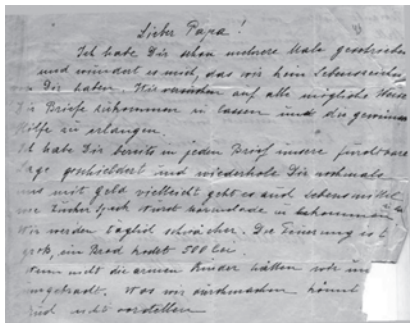 Lieber Papa!
Ich habe Dir schon mehrere Male geschrieben
und wundert es mich, das wir kein Lebenszeichen
von Dir haben. Wir versuchen auf alle mögliche Weise
Dir Briefe zukommen zu lassen und die
Hilfe zu erlangen.
Ich habe Dir bereits in jeden Brief unsere furchtbare
Lage geschildert und wiederhole Dir nochmals
uns mit Geld vielleicht geht es auch Lebensmittel
wie Zucker Speck Wurst Marmelade zu bekommen
Wir werden täglich schwächer. Die Teuerung ist
groß, ein Brod kostet 500 Lei.
Wenn nicht die armen Kinder hätten wir uns
umgebracht. Was wir durchmachen könnt
nicht vorstellen